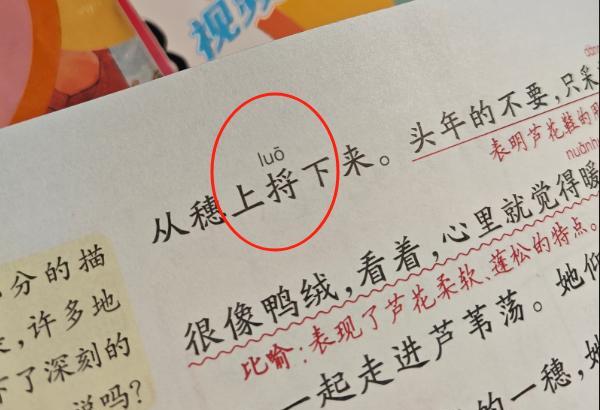 视频
luō
从穗上捋下来。头年的不要,只采
表明芦花鞋的
分的描
很像鸭绒,看着,心里就觉得暖
比喻:表现了芦花柔软、蓬松的特点。
许多地
一起走进芦苇荡。她
了深刻的
的一穗,她
说吗?